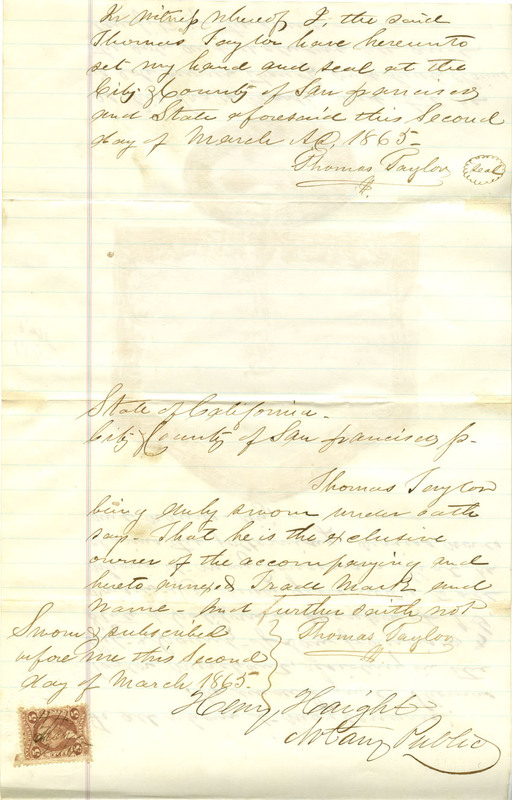 In witness whereof I, the said
Thomas Taylor have hereunto
set my hand and seal at the
City & County of San Francisco
and State aforesaid this Second
day of March AD, 1865-
Thomas Taylor
seal
State of California -
City & County of San Francisco ss-
Thomas Taylor
being duly sworn under oath
say - That he is the exclusive
owner of the accompanying and
hereto annexed Trade Mark and
Name - And further saith not
Sworn & subscribed
before me this Second
day of March, 1865-
Thomas Taylor
Henry Haight
Notary Public
5 5